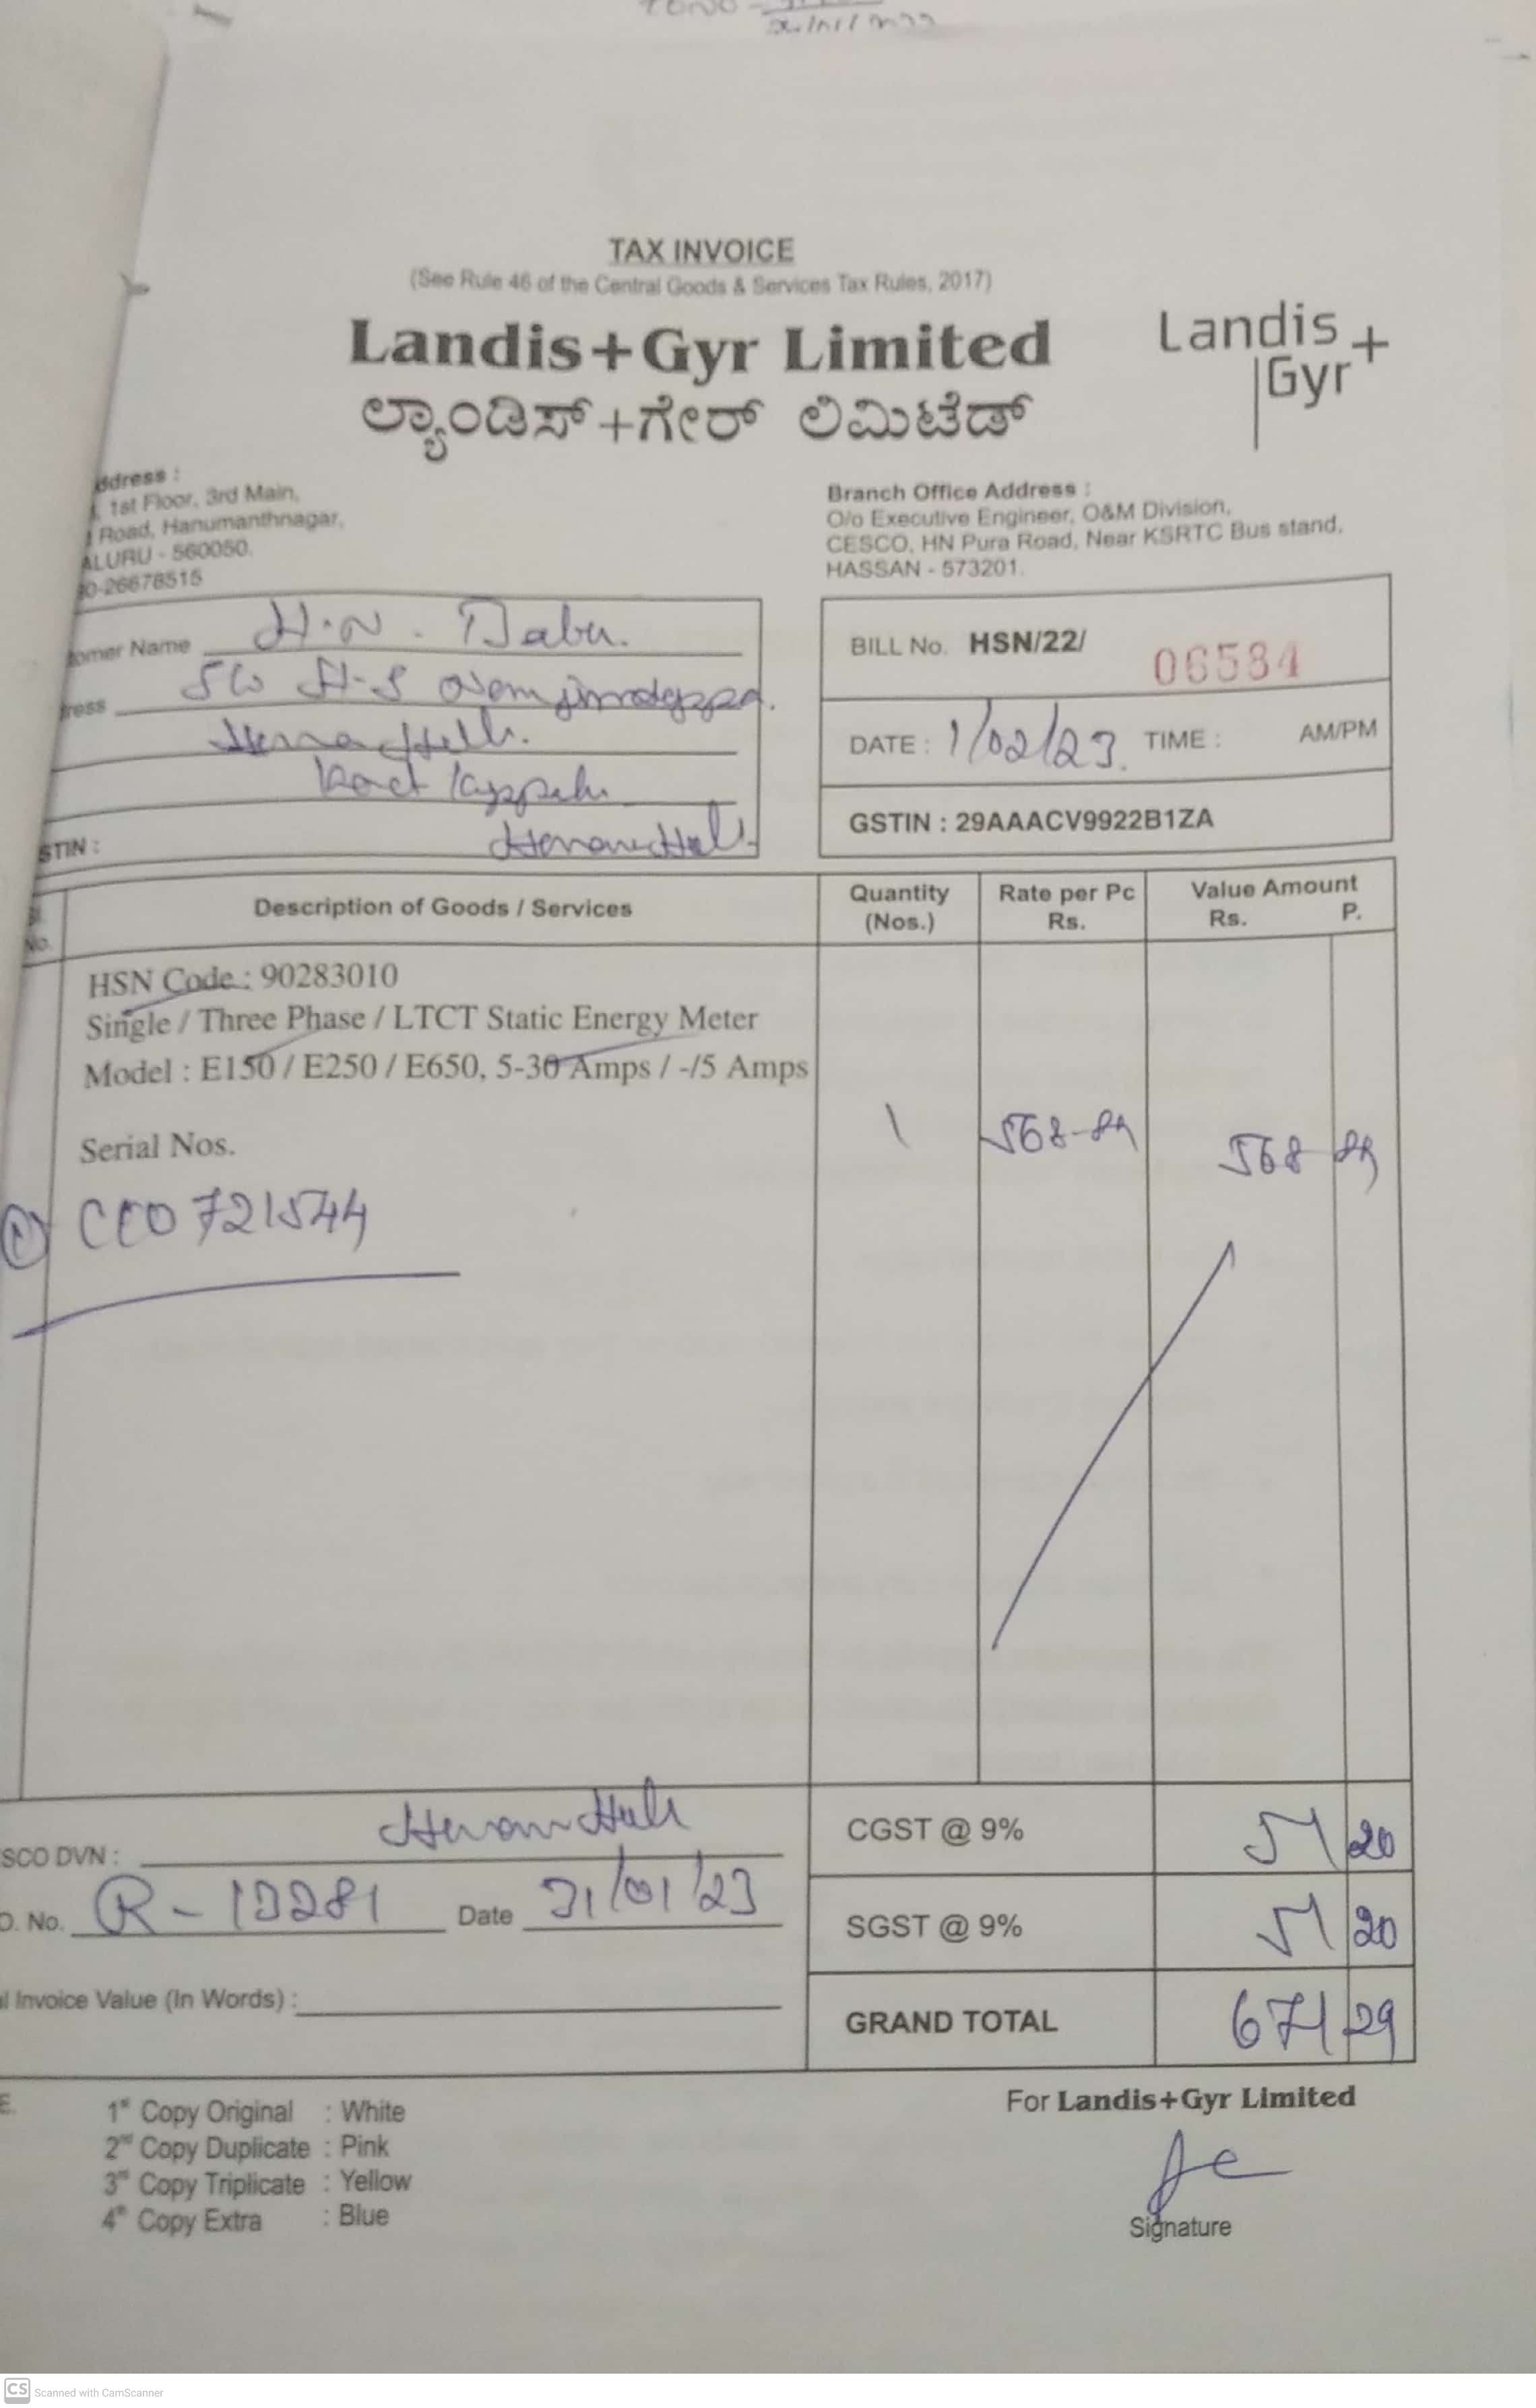 TAX INVOICE
(See Rule 46 of the Central Goods & Services Tax Rules, 2017)
Landis+Gyr Limited
ಲ್ಯಾಂಡಿಸ್+ಗೇರ್ ಲಿಮಿಟೆಡ್
Landis+
Gyr
ddress :
1st Floor, 3rd Main,
Road, Hanumanthnagar,
ALURU - 560050.
0-26678515
Branch Office Address :
O/o Executive Engineer, O&M Division,
CESCO, HN Pura Road, Near KSRTC Bus stand,
HASSAN - 573201.
tomer Name H.N. Babu.
ress S/o H-S
STIN :
BILL No. HSN/22/ 06584
DATE : 1/02/23. TIME : AM/PM
GSTIN : 29AAACV9922B1ZA
Sl. No. Description of Goods / Services Quantity (Nos.) Rate per Pc Rs. Value Amount Rs. P.
HSN Code : 90283010
Single / Three Phase / LTCT Static Energy Meter
Model : E150 / E250 / E650, 5-30 Amps / -/5 Amps
1 568-89 568 89
Serial Nos.
CCO721544
SCO DVN :
CGST @ 9% 51 20
O. No. R-13281 Date 31/01/23
SGST @ 9% 51 20
l Invoice Value (In Words) :
GRAND TOTAL 671 29
E.
1st Copy Original : White
2nd Copy Duplicate : Pink
3rd Copy Triplicate : Yellow
4th Copy Extra : Blue
For Landis+Gyr Limited
Signature
CS Scanned with CamScanner